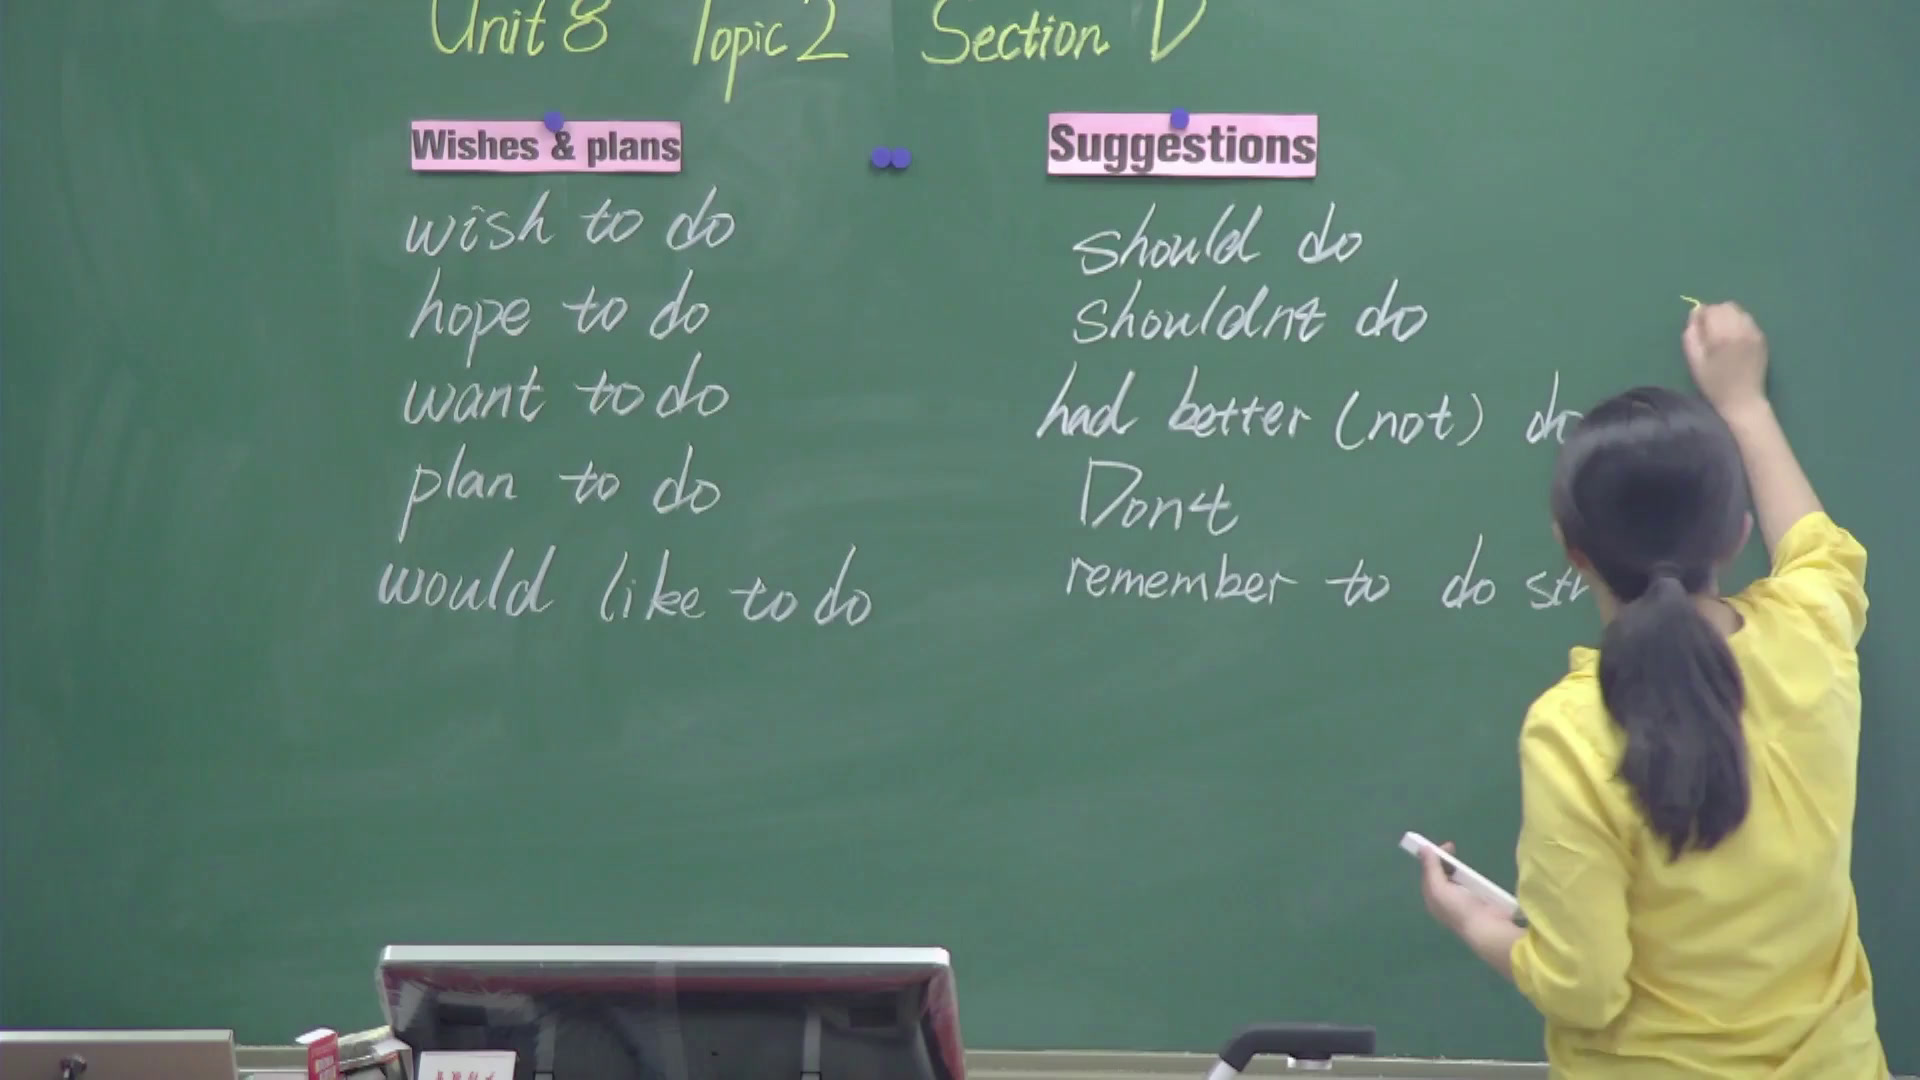 Unit 8 Topic 2 Section D
Wishes & plans
wish to do
hope to do
want to do
plan to do
would like to do
Suggestions
should do
shouldn't do
had better (not) do
Don't
remember to do